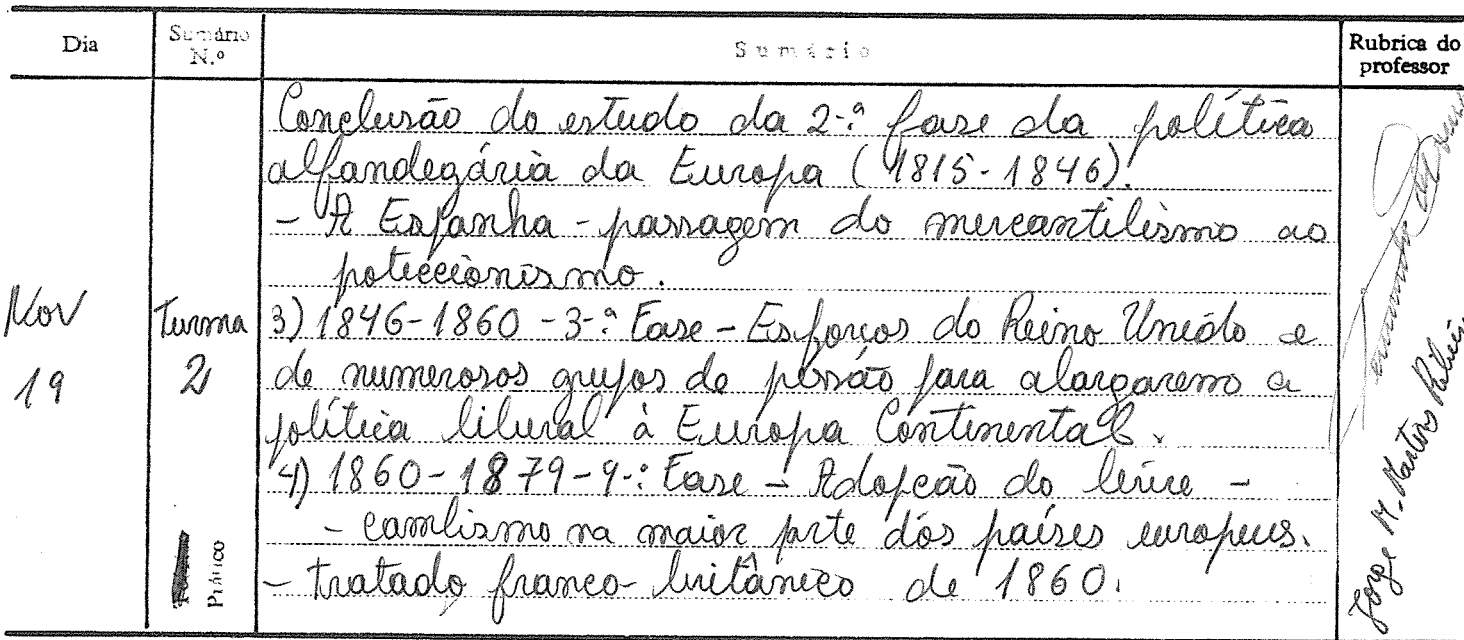 Dia
Sumário N.º
Sumário
Rubrica do professor
Conclusão do estudo da 2.ª fase da política
alfandegária da Europa (1815-1846).
- A Espanha - passagem do mercantilismo ao
poteccionismo.
Nov
19
Turma
2
Prático
3) 1846-1860 - 3.ª Fase - Esforços do Reino Unido e
de numerosos grupos de pressão para alargarem a
política liberal à Europa Continental.
4) 1860-1879 - 4.ª Fase - Adopção do livre -
- cambismo na maior parte dos países europeus.
- tratado franco-britânico de 1860.
Jorge M. Martins Ribeiro